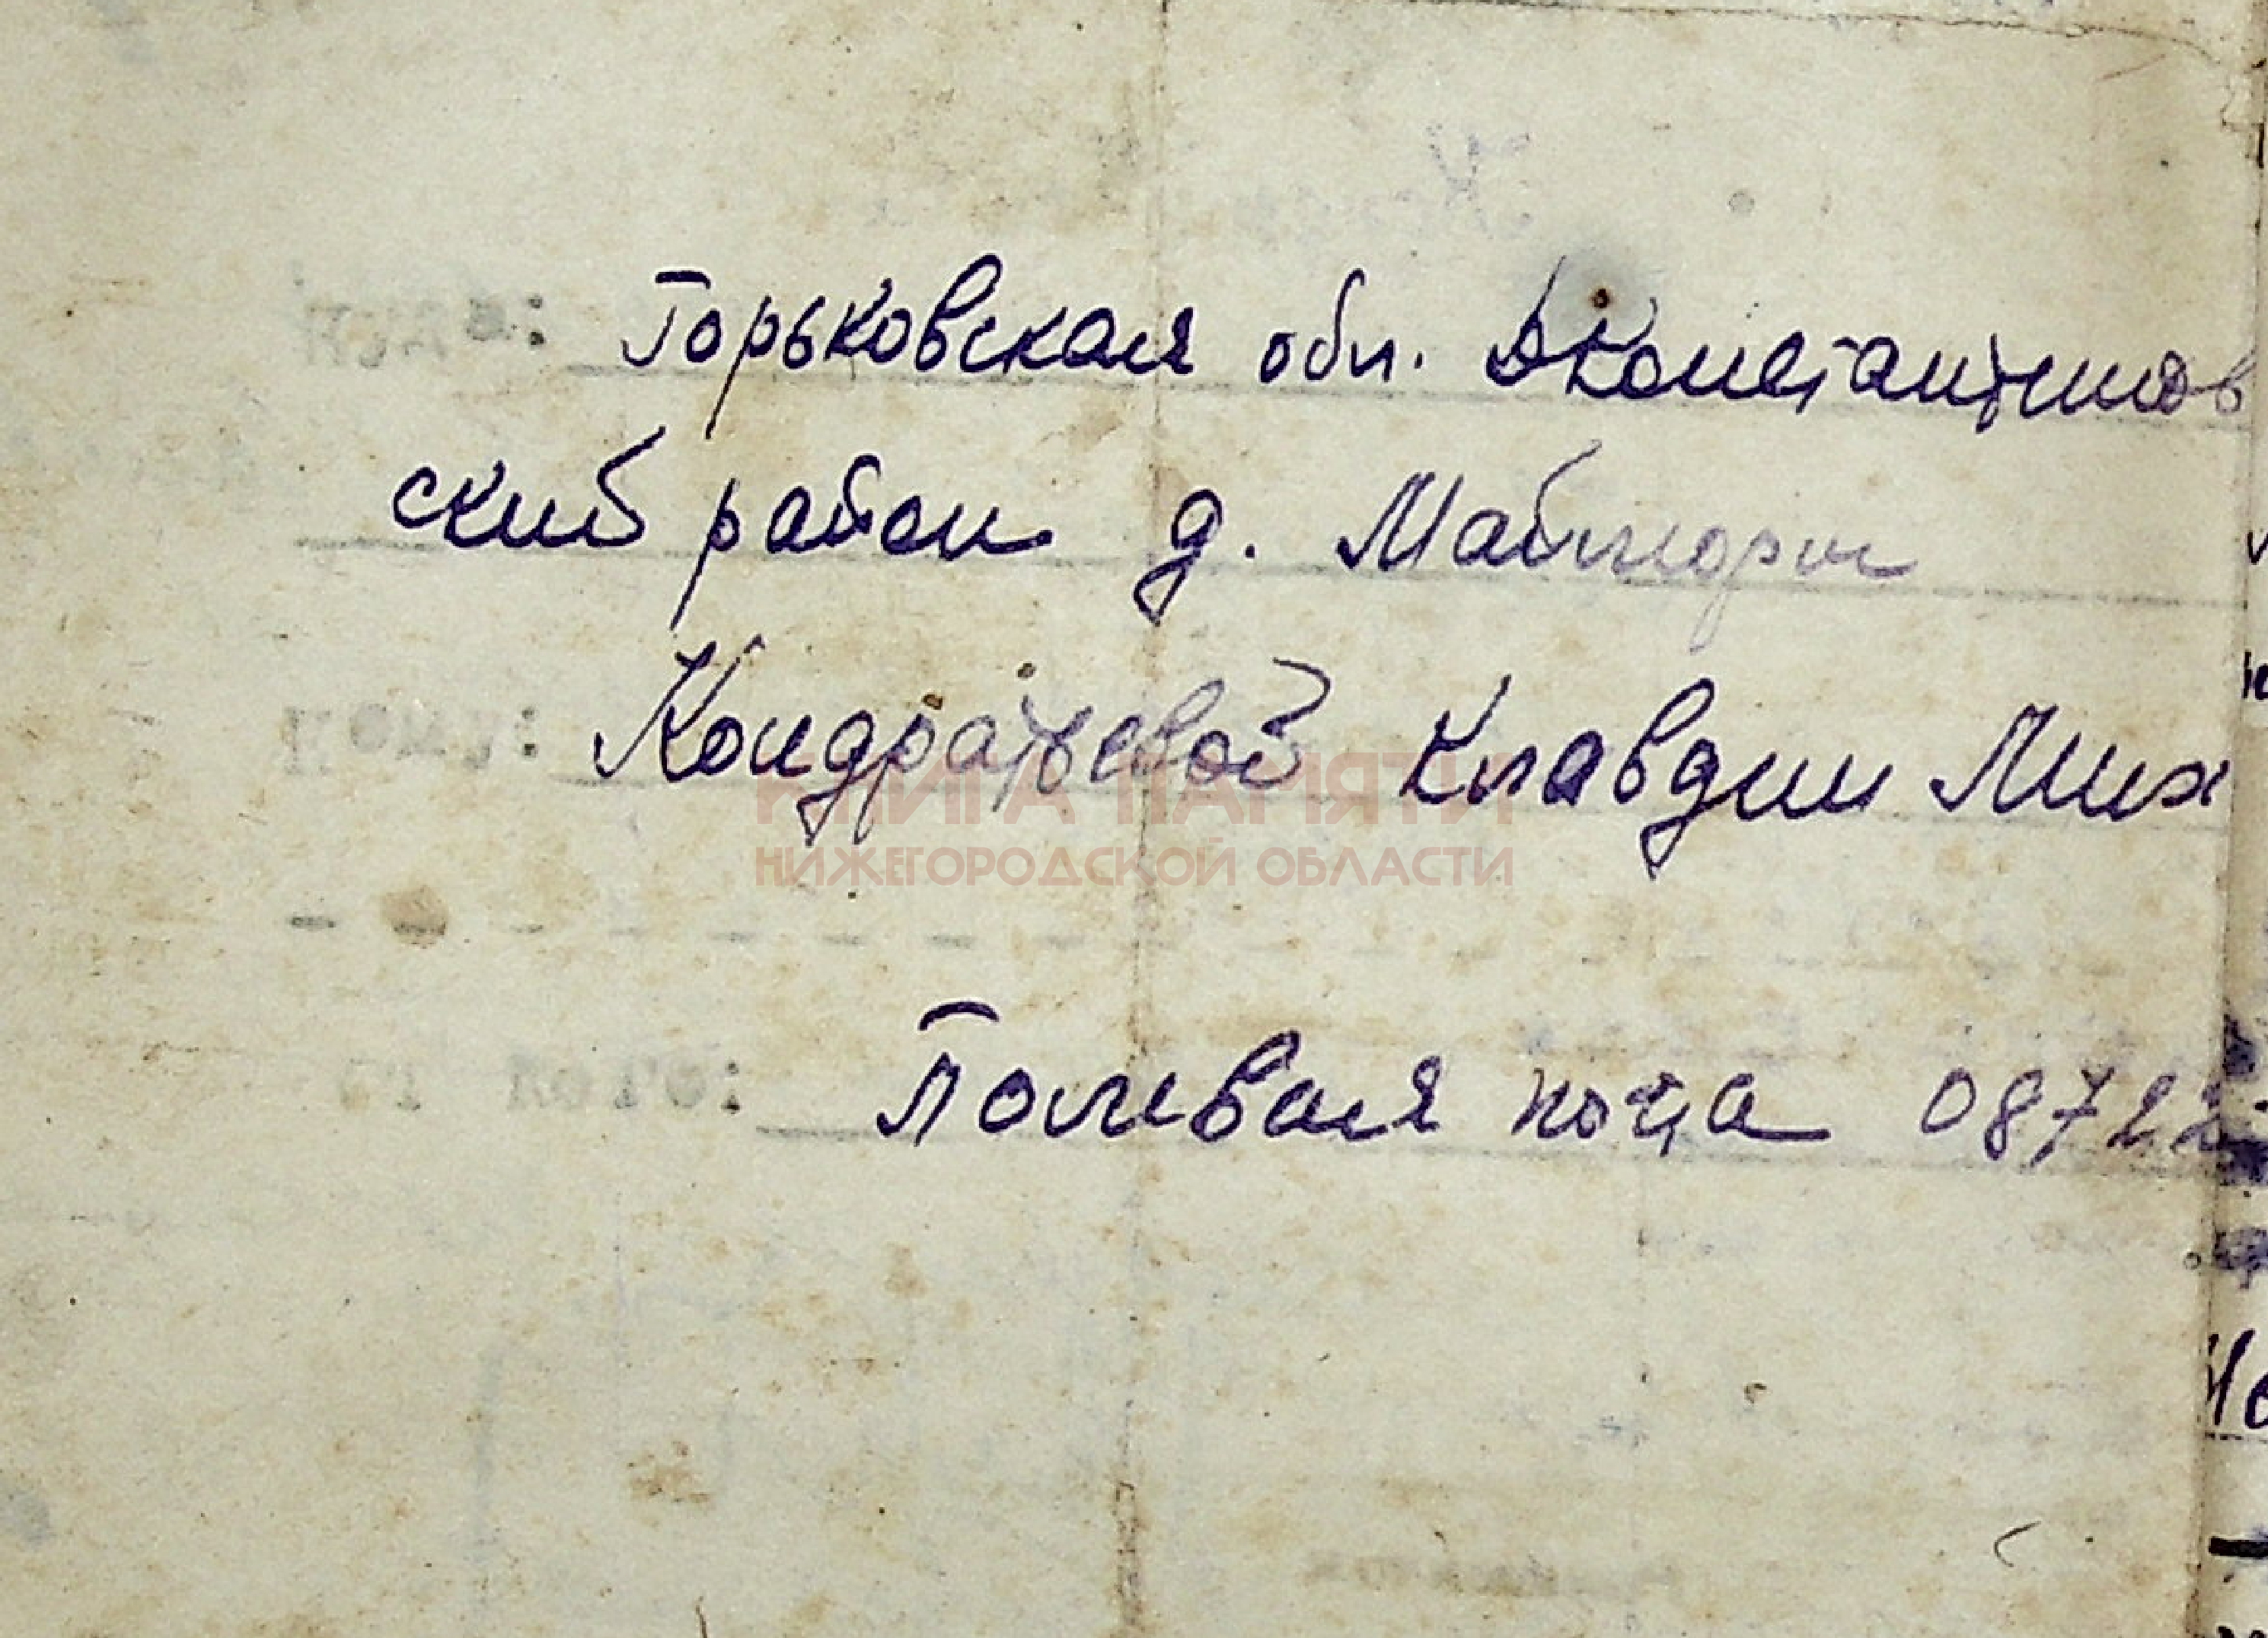 Куда: Горьковская обл. Д Константинов
ский район д. Майморы
Кому: Кондратьевой Клавдии Мих
КНИГА ПАМЯТИ
НИЖЕГОРОДСКОЙ ОБЛАСТИ
от кого: Полевая почта 08722